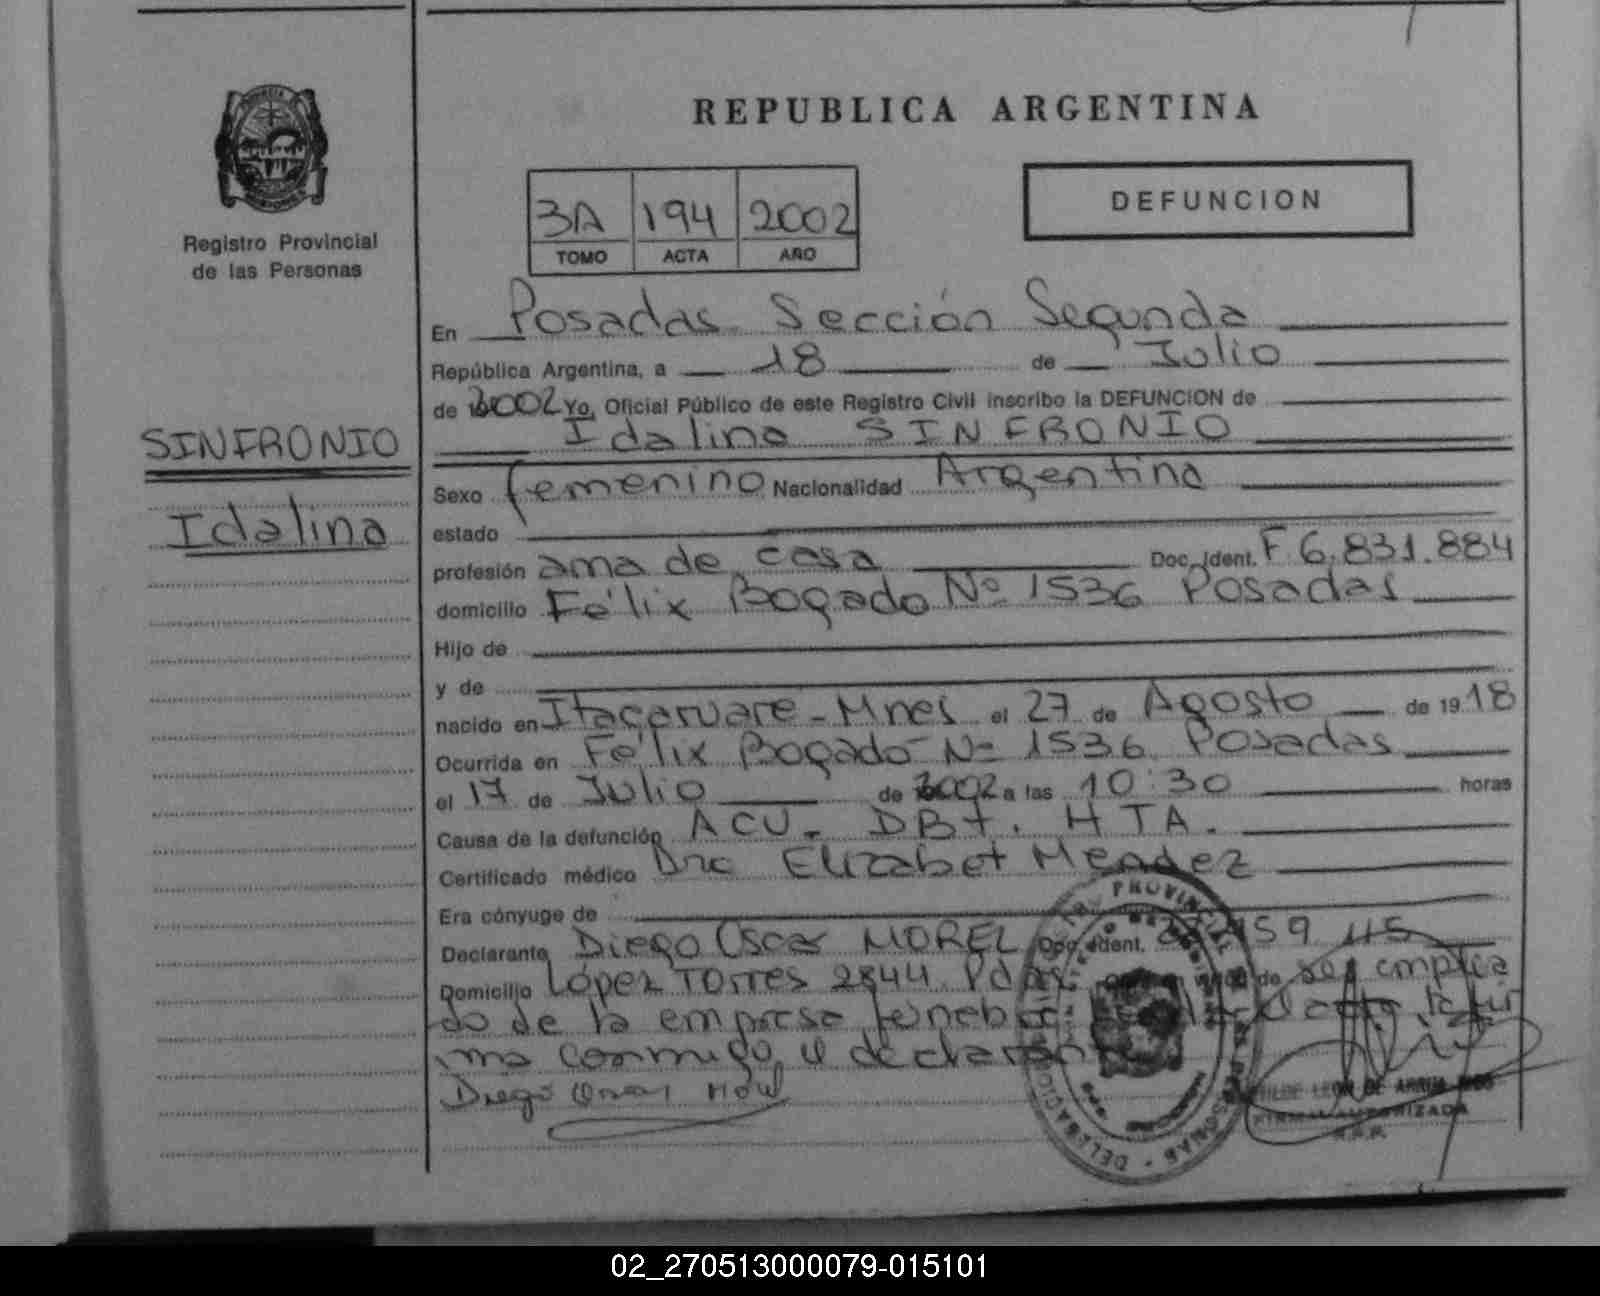 REPUBLICA ARGENTINA
Registro Provincial
de las Personas
3A 194 2002
TOMO ACTA AÑO
DEFUNCION
SINFRONIO
Idalina
En Posadas Sección Segunda
República Argentina, a 18 de Julio
de 2002 Yo, Oficial Público de este Registro Civil inscribo la DEFUNCION de
Idalina SINFRONIO
Sexo femenino Nacionalidad Argentina
estado
profesión ama de casa Doc. Ident. F 6.831.884
domicilio Félix Bogado Nº 1536 Posadas
Hijo de
y de
nacido en Itacaruare - Mnes el 27 de Agosto de 1918
Ocurrida en Félix Bogado Nº 1536 Posadas
el 17 de Julio de 2002 a las 10:30 horas
Causa de la defunción ACV. DBT. HTA.
Certificado médico Dra Elizabet Mendez
Era cónyuge de
Declarante Diego Oscar MOREL Doc. Ident.
Domicilio López Torres 2844 Pdas de ser emplea
do de la empresa
conmigo el declarante
Diego Oscar
FIRMA AUTORIZADA
02_270513000079-015101